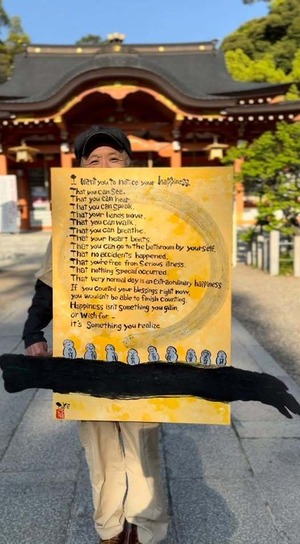 I want you to notice your happiness
That you can see.
That you can hear.
That you can speak.
That your hands move.
That you can walk.
That you can breathe.
That your heart beats.
That you can go to the bathroom by yourself.
That no accidents happened.
That you're free from serious illness.
That nothing special occurred.
That very normal day is an extraordinary happiness
If you counted your blessings right now,
you wouldn't be able to finish counting.
Happiness isn't something you gain
or wish for –
it's something you realize.